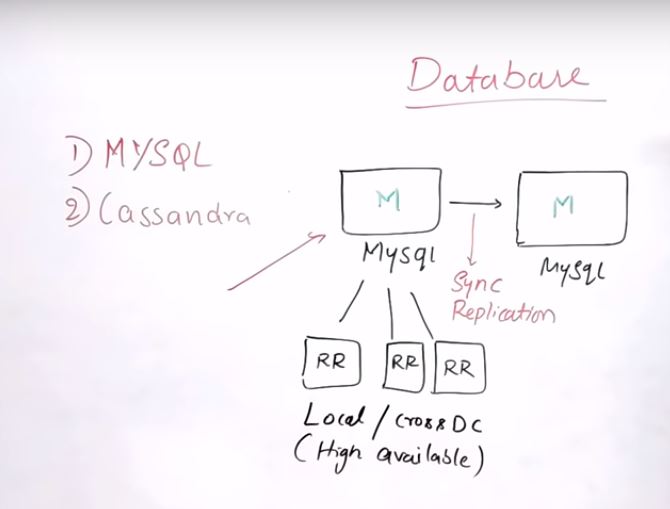 Database
1) MYSQL
2) Cassandra
M
M
Mysql
Mysql
Sync
Replication
RR
RR
RR
Local / Cross DC
(High available)